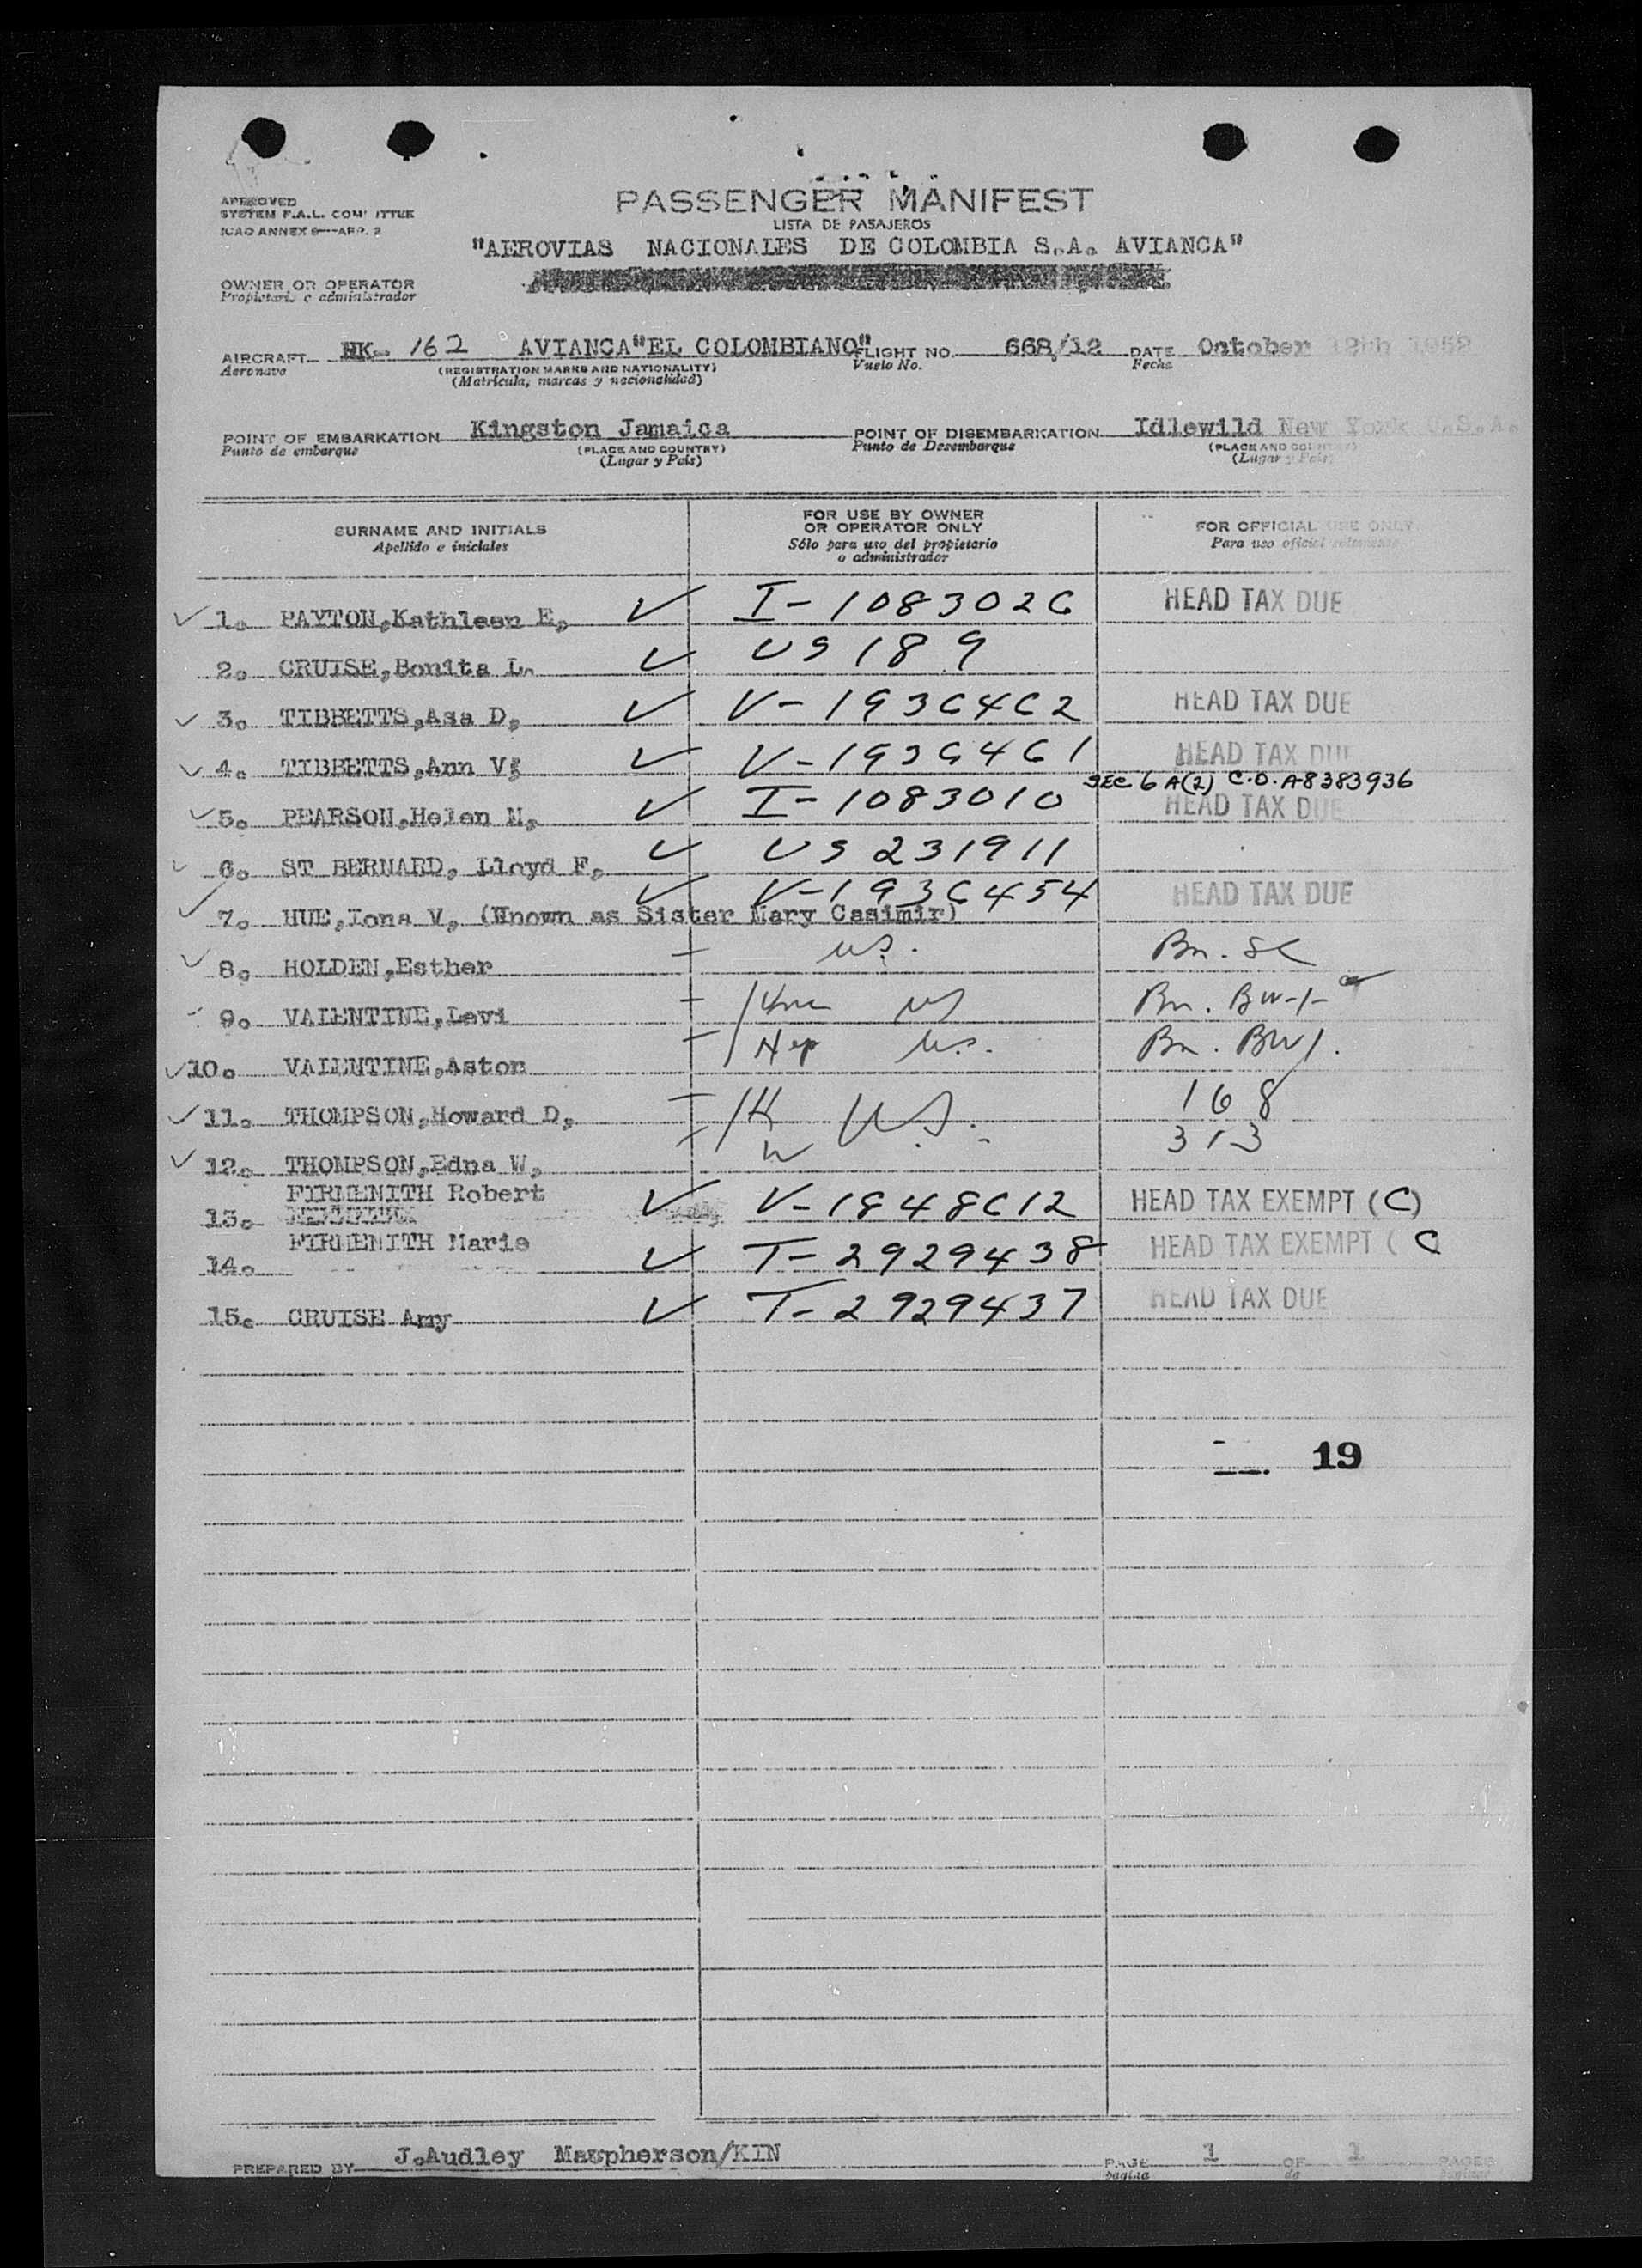 APPROVED
SYSTEM F.A.L. COM ITTEE
ICAO ANNEX 9—APP. 2
PASSENGER MANIFEST
LISTA DE PASAJEROS
"AEROVIAS NACIONALES DE COLOMBIA S.A. AVIANCA"
OWNER OR OPERATOR
Propietario o administrador
AIRCRAFT HK- 162 AVIANCA "EL COLOMBIANO" FLIGHT NO. 668/12 DATE October 12th 1952
Aeronave (REGISTRATION MARKS AND NATIONALITY) Vuelo No. Fecha
(Matrícula, marcas y nacionalidad)
POINT OF EMBARKATION Kingston Jamaica POINT OF DISEMBARKATION Idlewild New York U.S.A.
Punto de embarque (PLACE AND COUNTRY) Punto de Desembarque (PLACE AND COUNTRY)
(Lugar y País) (Lugar y País)
SURNAME AND INITIALS
Apellido e iniciales
FOR USE BY OWNER
OR OPERATOR ONLY
Sólo para uso del propietario
o administrador
FOR OFFICIAL USE ONLY
Para uso oficial solamente
1. PAYTON,Kathleen E. ✓ I-1083026 HEAD TAX DUE
2. CRUISE,Bonita L. ✓ US 189
3. TIBBETTS,Asa D. ✓ V-1936462 HEAD TAX DUE
4. TIBBETTS,Ann V. ✓ V-1936461 HEAD TAX DUE
SEC 6 A(2) C.O. A8383936
5. PEARSON,Helen M. ✓ I-1083010 HEAD TAX DUE
6. ST BERNARD, Lloyd F. ✓ US 231911
7. HUE,Iona V. (Known as Sister Mary Casimir) ✓ V-1936454 HEAD TAX DUE
8. HOLDEN,Esther US. Bn. SC
9. VALENTINE,Levi US Bn. BW-1-
10. VALENTINE,Aston U.S. Bn. BW1.
11. THOMPSON,Howard D. H U.S. 168
12. THOMPSON,Edna W. W 313
13. FIRMENITH Robert ✓ V-1848612 HEAD TAX EXEMPT (C)
14. FIRMENITH Marie ✓ T-2929438 HEAD TAX EXEMPT ( C
15. CRUISE Amy ✓ T-2929437 HEAD TAX DUE
19
PREPARED BY J.Audley Macpherson/KIN PAGE 1 OF 1 PAGES
página de